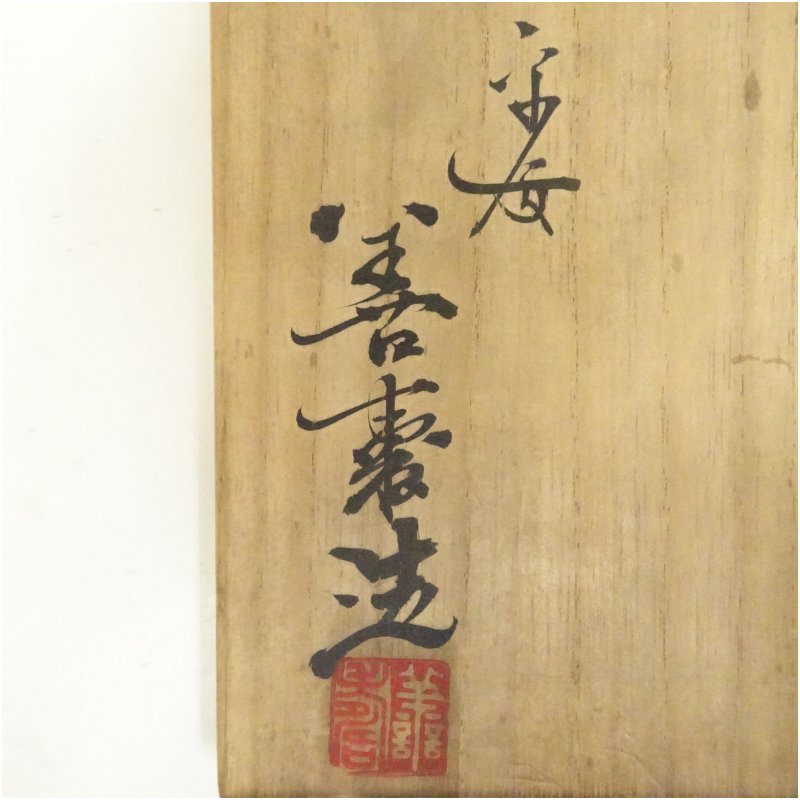 平安
善壽造